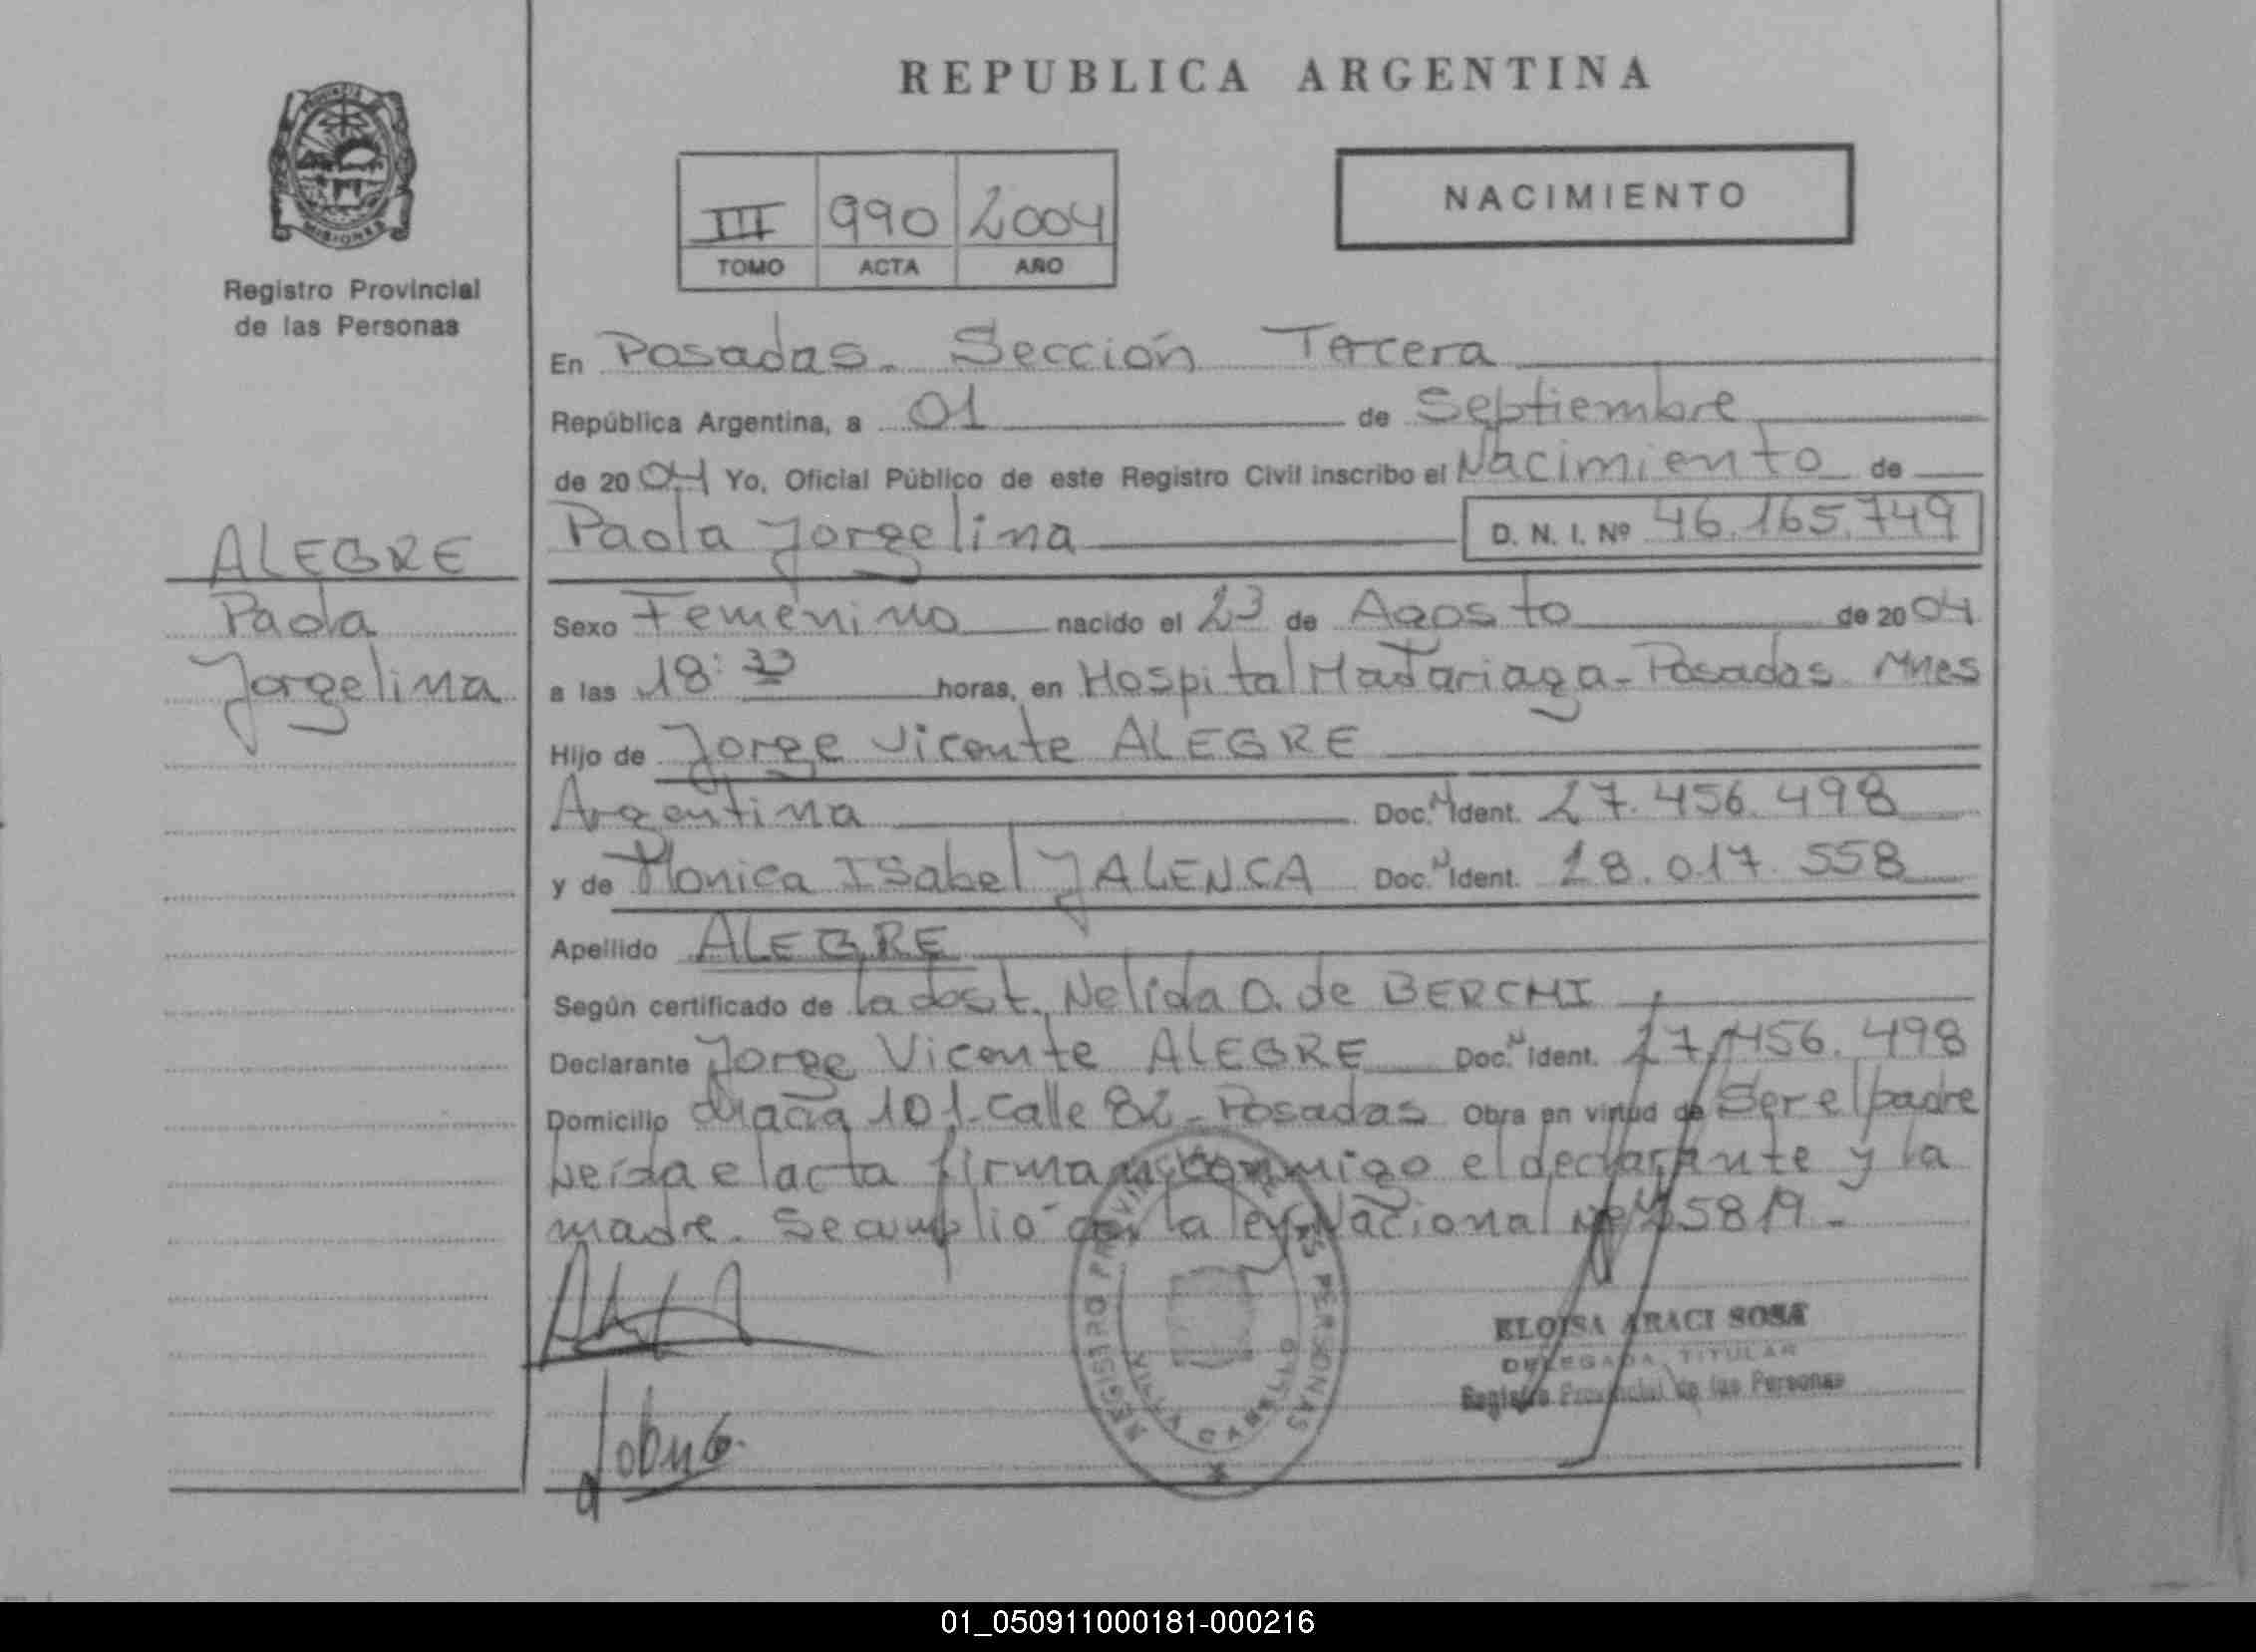 REPUBLICA ARGENTINA
PROVINCIA DE MISIONES
Registro Provincial
de las Personas
III 990 2004
TOMO ACTA AÑO
NACIMIENTO
En Posadas. Sección Tercera
República Argentina, a 01 de Septiembre
de 2004 Yo, Oficial Público de este Registro Civil inscribo el Nacimiento de
Paola Jorgelina D. N. I. Nº 46.165.749
ALEGRE
Paola
Jorgelina
Sexo Femenino nacido el 23 de Agosto de 2004
a las 18:33 horas, en Hospital Madariaga - Posadas Mnes
Hijo de Jorge Vicente ALEGRE
Argentina Doc. N Ident. 27.456.498
y de Monica Isabel JALENCA Doc. N Ident. 28.017.558
Apellido ALEGRE
Según certificado de la obst. Nelida O. de BERCHI
Declarante Jorge Vicente ALEGRE Doc. N Ident. 27.456.498
Domicilio 101 - Calle 82 - Posadas Obra en virtud de Ser el padre
Leída el acta firman conmigo el declarante y la
madre. Se cumplió con la ley Nacional
REGISTRO PROVINCIAL DE LAS PERSONAS
VILLA CABELLO
ELOISA ARACI SOSA
DELEGADA TITULAR
Registro Provincial de las Personas
01_050911000181-000216